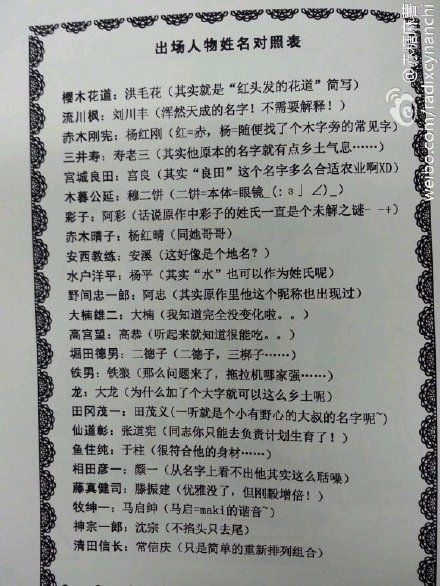 出场人物姓名对照表
樱木花道：洪毛花（其实就是“红头发的花道”简写）
流川枫：刘川丰（浑然天成的名字！不需要解释！）
赤木刚宪：杨红刚（红=赤，杨=随便找了个木字旁的常见字）
三井寿：寿老三（其实他原本的名字就有点乡土气息……）
宫城良田：宫良（其实“良田”这个名字多么合适农业啊XD）
木暮公延：穆二饼（二饼=本体=眼镜_(:з」∠)_）
彩子：阿彩（话说原作中彩子的姓氏一直是个未解之谜- -+）
赤木晴子：杨红晴（同她哥哥）
安西教练：安溪（这好像是个地名？）
水户洋平：杨平（其实“水”也可以作为姓氏呢）
野间忠一郎：阿忠（其实原作里他这个昵称也出现过）
大楠雄二：大楠（我知道完全没变化啦。。）
高宫望：高恭（听起来就知道很能吃。。）
堀田德男：二德子（二德子，三梆子……）
铁男：铁狼（那么问题来了，拖拉机哪家强……）
龙：大龙（为什么加了个大字就可以这么乡土呢）
田冈茂一：田茂义（一听就是个小有野心的大叔的名字呢~）
仙道彰：张道宪（同志你只能去负责计划生育了！）
鱼住纯：于柱（很符合他的身材……）
相田彦一：颜一（从名字上看不出他其实这么聒噪）
藤真健司：滕振建（优雅没了，但刚毅增倍！）
牧绅一：马启绅（马启=maki的谐音~）
神宗一郎：沈宗（不掐头只去尾）
清田信长：常信庆（只是简单的重新排列组合）
weibo.com/radixcynanchi